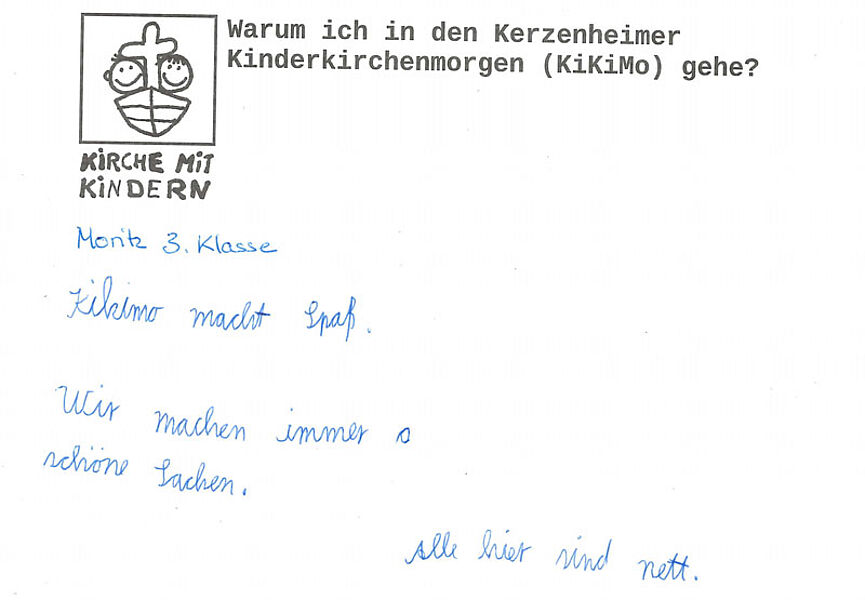 Warum ich in den Kerzenheimer
Kinderkirchenmorgen (KiKiMo) gehe?
KiRCHE MiT
KiNDERN
Moritz 3. Klasse
Kikimo macht Spaß.
Wir machen immer o
schöne Sachen.
Alle hier sind nett.